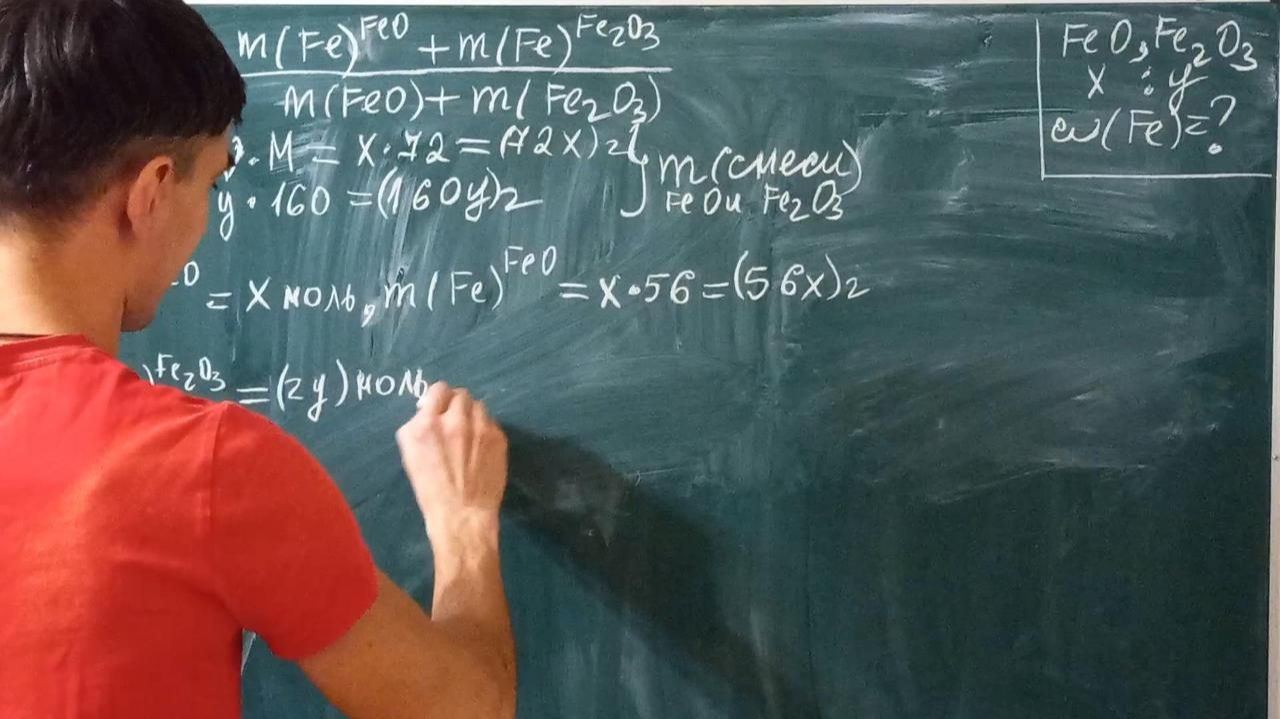 m(Fe)^FeO + m(Fe)^Fe₂O₃
m(FeO) + m(Fe₂O₃)
· M = x · 72 = (72x)г
y · 160 = (160y)г
m(смеси)
FeO и Fe₂O₃
O = x моль, m(Fe)^FeO = x · 56 = (56x)г
)^Fe₂O₃ = (2y) моль
FeO, Fe₂O₃
x : y
ω(Fe) = ?